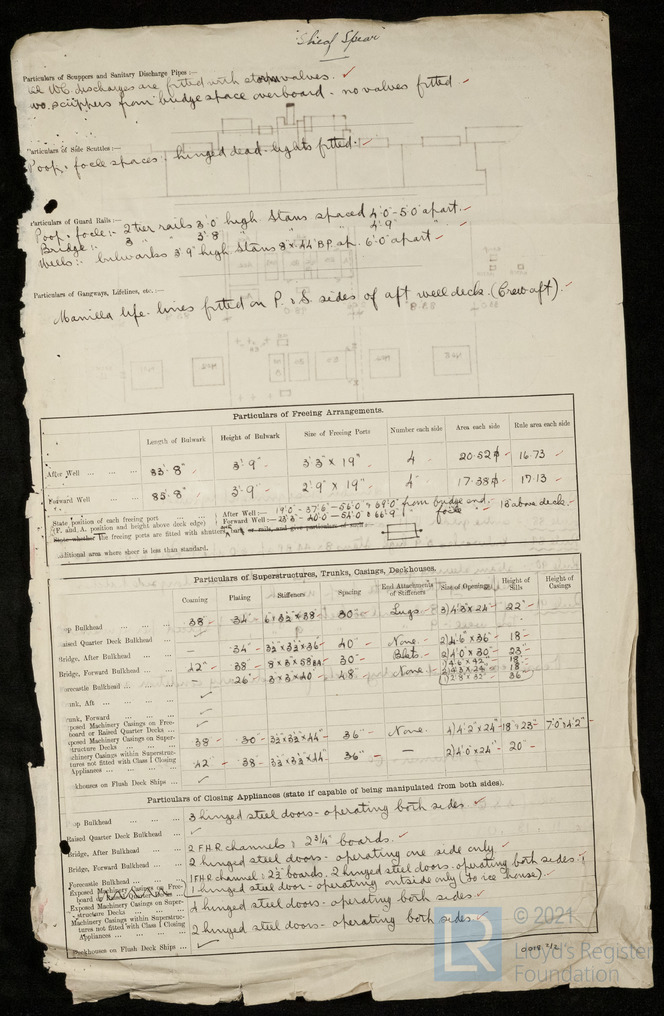 "Shief Spear"
Particulars of Scuppers and Sanitary Discharge Pipes:—
W.C. discharges are fitted with storm valves. ✓
scuppers from bridge space overboard - no valves fitted
Particulars of Side Scuttles:—
Poop & focle spaces : hinged dead-lights fitted.
Particulars of Guard Rails:—
Poop & focle :- 2 tier rails 3'0" high. Stans spaced 4'0"-5'0" apart.
Bridge :- 3 " " 3'8" " " " 4'9" "
Wells :- bulwarks 3'9" high. Stans 8" x .44" BP. sp. 6'0" apart
Particulars of Gangways, Lifelines, etc.:—
Manilla life-lines fitted on P. & S. sides of aft well deck. (Crew aft).
Particulars of Freeing Arrangements.
Length of Bulwark Height of Bulwark Size of Freeing Ports Number each side Area each side Rule area each side
After Well ... 83'-8" 3'-9" 3'3" x 19" 4 20.52 16.73
Forward Well 85'.8" 3'-9" 2'9" x 19" 4 17.38 17.13
State position of each freeing port
(F. and A. position and height above deck edge)
After Well :— 19'0" - 37'6" - 56'0" & 69'0" from bridge and
Forward Well :— 23'3" - 40'0" - 54'0" & 66'9" focle 13" above deck.
State whether the freeing ports are fitted with shutters, bars or rails, and give particulars of such
additional area where sheer is less than standard.
Particulars of Superstructures, Trunks, Casings, Deckhouses.
Coaming Plating Stiffeners Spacing End Attachments of Stiffeners Size of Openings Height of Sills Height of Casings
Bulkhead ... .38 .34 6 x 3½ x .38 30" Lugs 3) 4'3 x 24" 22"
Raised Quarter Deck Bulkhead
Bridge, After Bulkhead ... — .34 3½ x 3½ x .36 40" None. 2) 4'6" x 36" 18"
Bridge, Forward Bulkhead ... .42 .38 8 x 3 x .58 BA 30" Bkts. 2) 4'0" x 30" 23"
Forecastle Bulkhead ... — .26 3 x 3 x .40 48" None 1) 4'6 x 42" 18"
2) 4'3 x 24" 18"
1) 2'8 x 32" 36"
Trunk, Aft ... ✓
Trunk, Forward ... ✓
Exposed Machinery Casings on Free-
board or Raised Quarter Decks ... ✓
Exposed Machinery Casings on Super-
structure Decks ... .38 .30 3½ x 3½ x .44 36" None. 4) 4'2" x 24" 18" & 23" 7'0" & 4'2"
Machinery Casings within Superstruc-
tures not fitted with Class I Closing
Appliances ... .42 .38 3½ x 3½ x .44 36" — 2) 4'0 x 24" 20"
Deckhouses on Flush Deck Ships ... ✓
Particulars of Closing Appliances (state if capable of being manipulated from both sides).
Bulkhead ... 3 hinged steel doors - operating both sides ✓
Raised Quarter Deck Bulkhead ✓
Bridge, After Bulkhead ... 2 F.H.R. channels : 2¾" boards. ✓
Bridge, Forward Bulkhead ... 2 hinged steel doors - operating one side only
Forecastle Bulkhead ... 1 F.H.R. channel : 2½" boards. 2 hinged steel doors - operating both sides :
1 hinged steel door - operating outside only (to ice house).
Exposed Machinery Casings on Free-
board or Raised
Exposed Machinery Casings on Super-
structure Decks ... 4 hinged steel doors - operating both sides ✓
Machinery Casings within Superstruc-
tures not fitted with Class I Closing
Appliances ... 2 hinged steel doors - operating both sides ✓
Deckhouses on Flush Deck Ships ... ✓
© 2021
LR
Lloyd's Register
Foundation